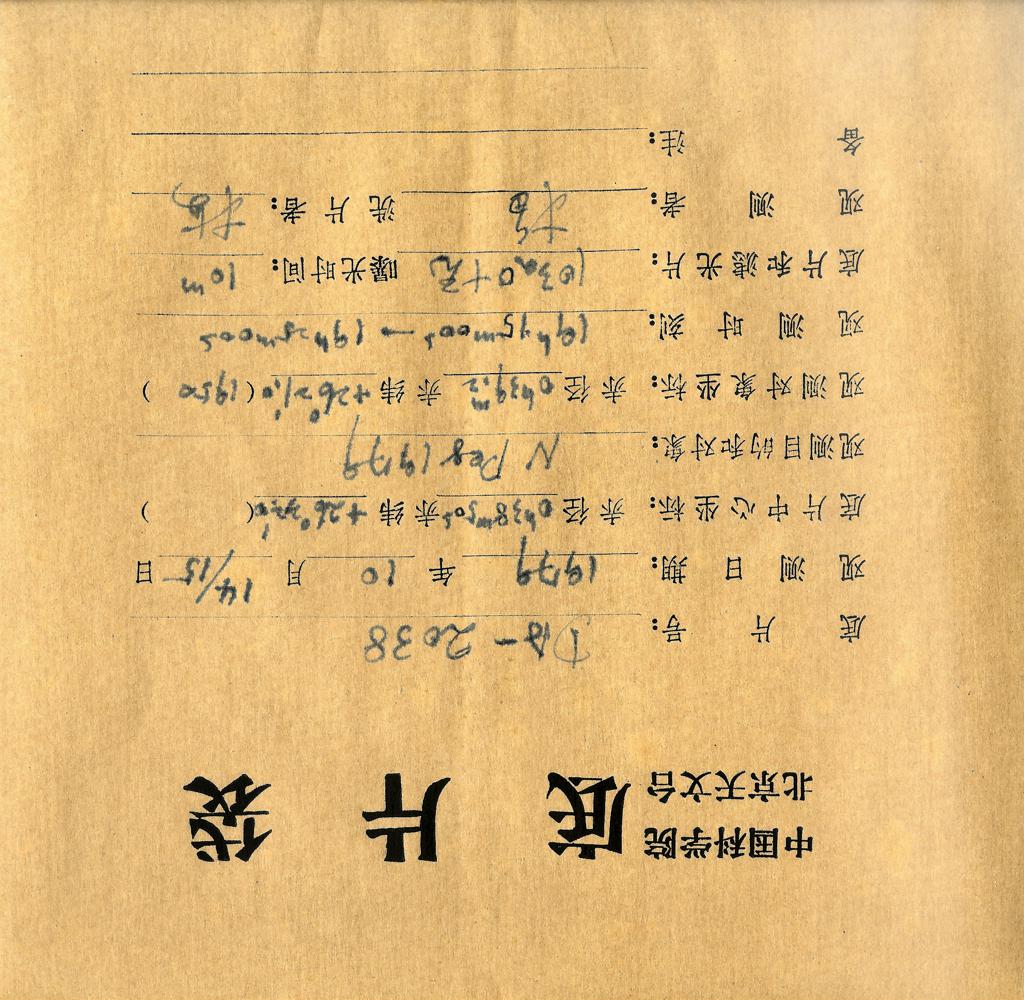 中国科学院
北京天文台 底片袋
底片号： DB-2038
观测日期： 1979 年 10 月 14/15 日
底片中心坐标： 赤径 0h38m50s 赤纬 +26°35.0′ ( )
观测目的和对象： N Peg 1979
观测对象坐标： 赤径 0h39m.2 赤纬 +26°21.0′ (1950)
观测时刻： 19h15m00s — 19h25m00s
底片和滤光片： 103aO+无 曝光时间： 10m
观测者： 洗片者：
备注：